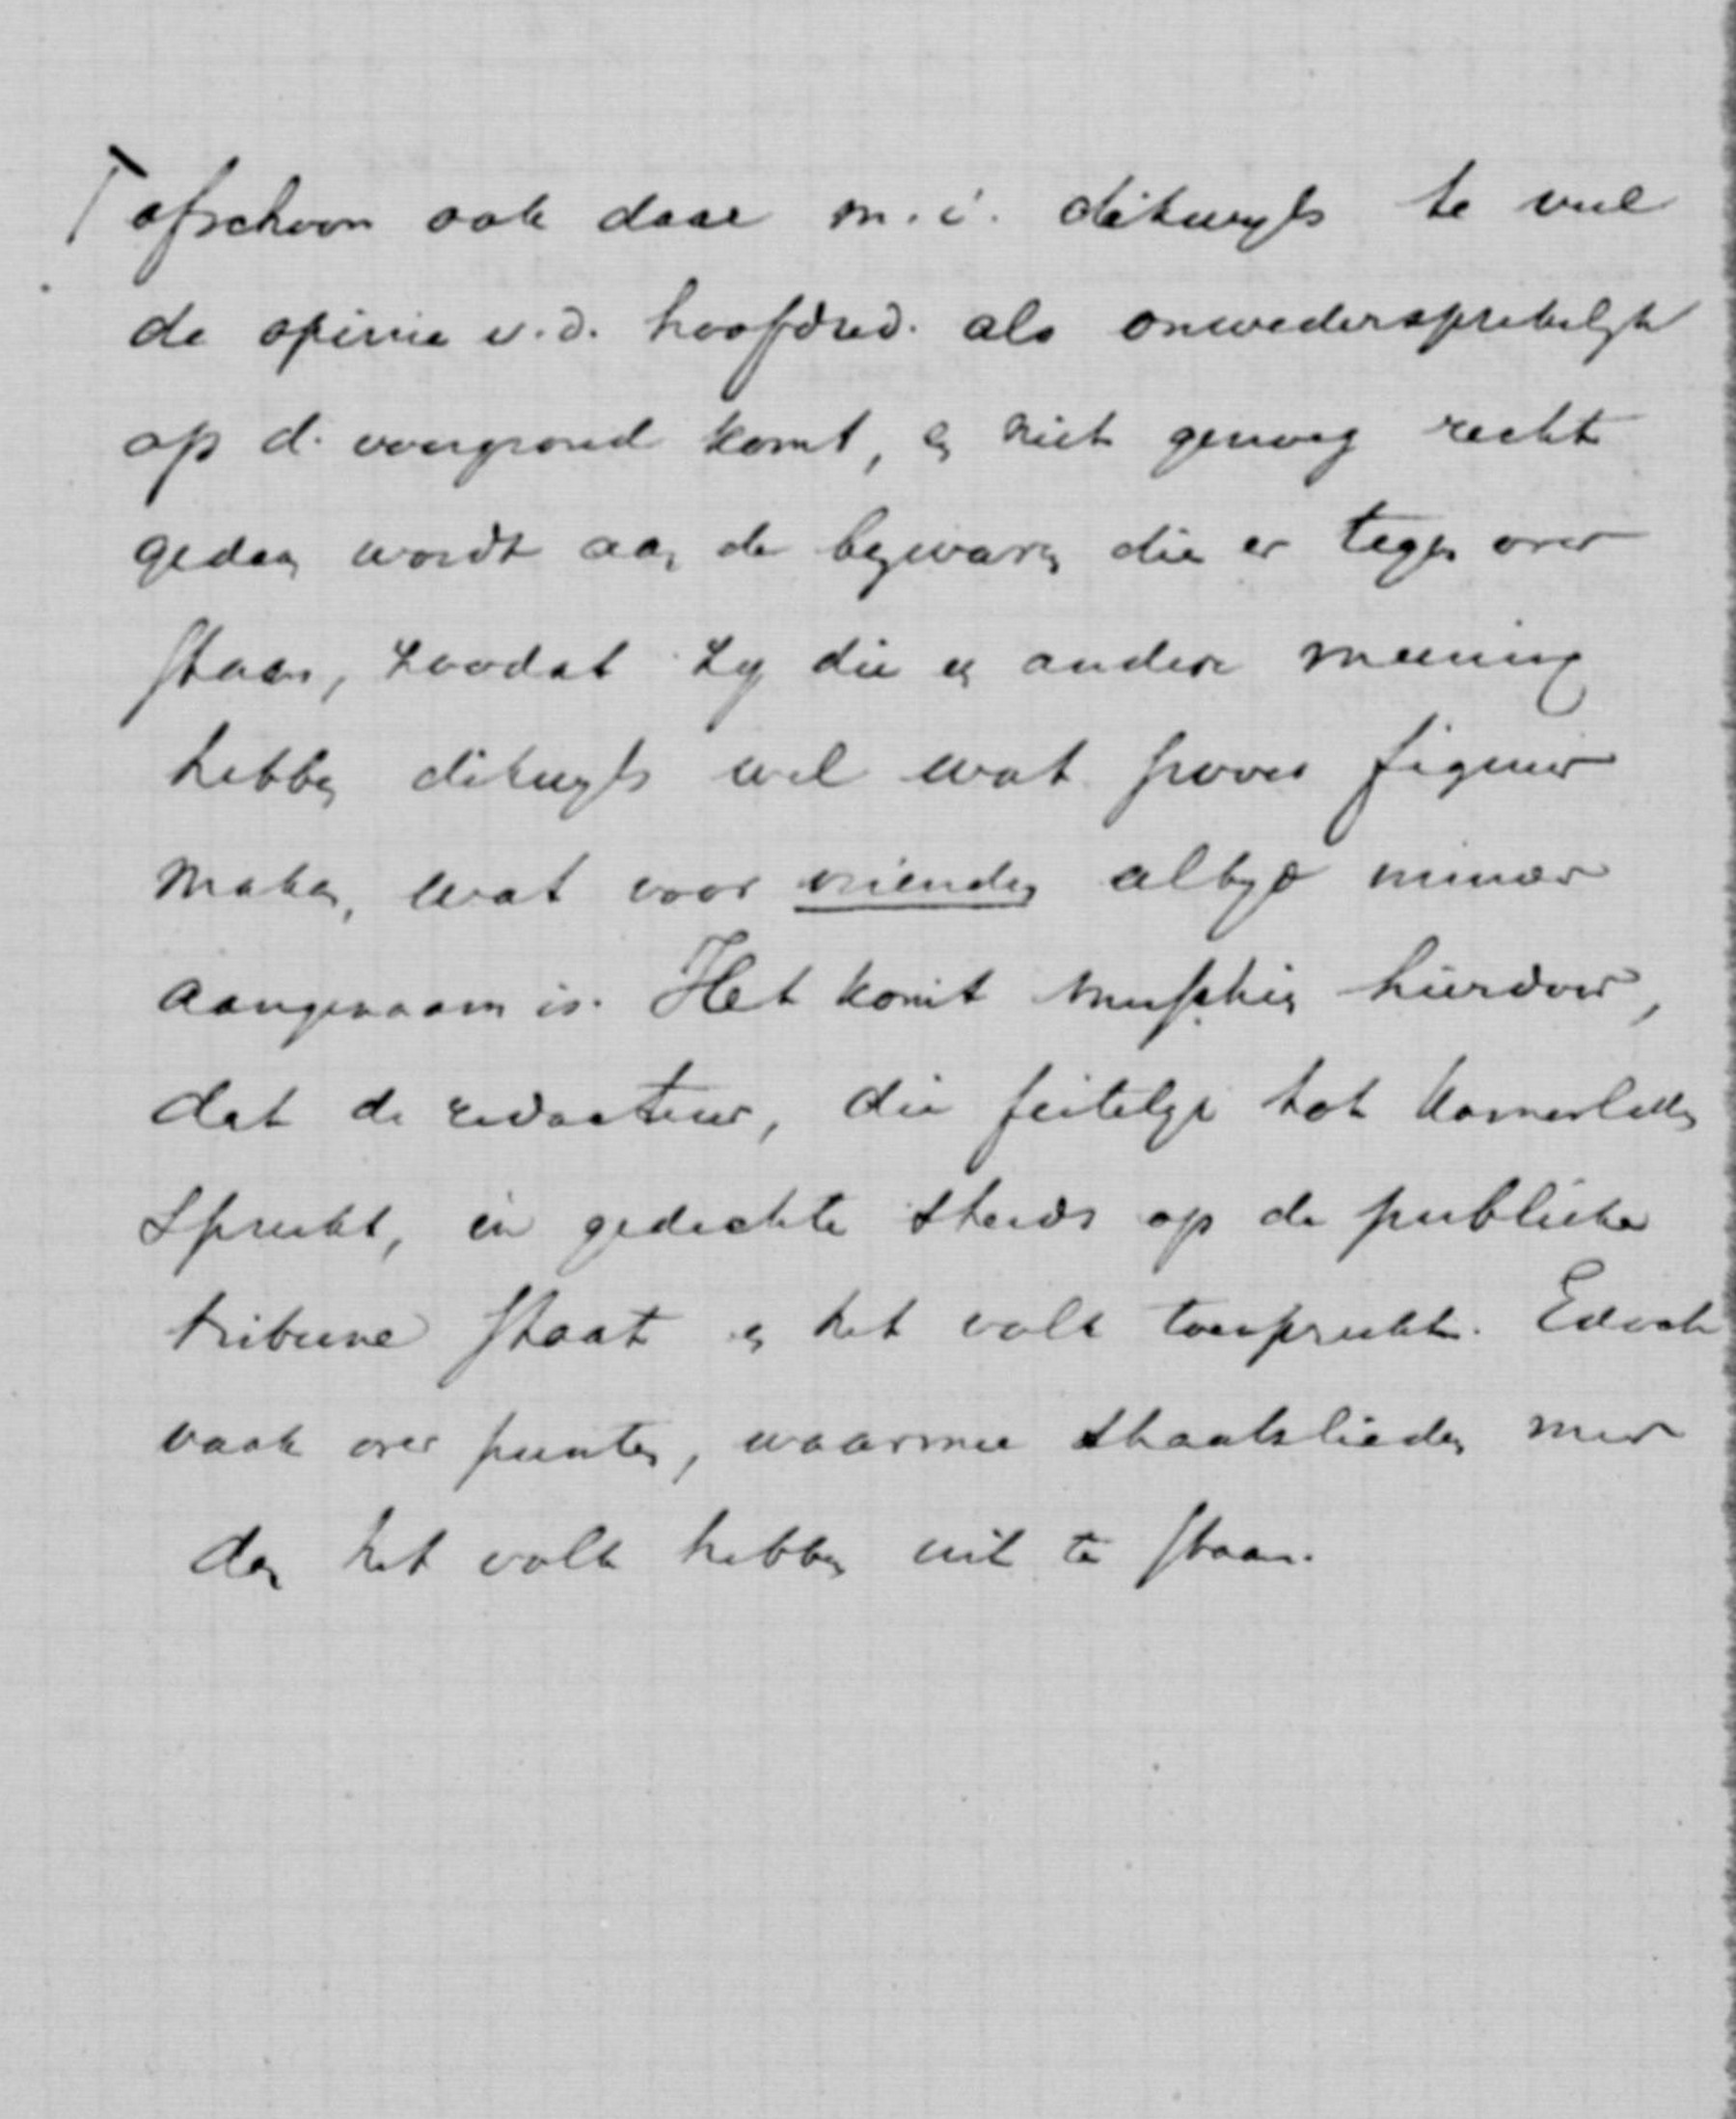 ofschoon ook daar m.i. dikwijls te veel
de opinie v.d. hoofdred. als onwedersprekelijk
op d. voorgrond komt, en niet genoeg recht
gedaan wordt aan de bezwaren die er tegen over
staan, zoodat zij die een andere meening
hebben dikwijls wel wat pover figuur
maken, wat voor vrienden altijd minder
aangenaam is. Het komt misschien hierdoor,
dat de redacteur, die feitelijk tot Kamerleden
spreekt, in gedachte steeds op de publieke
tribune staat en het volk toespreekt. Edoch
vaak over punten, waarmee staatslieden meer
dan het volk hebben uit te staan.